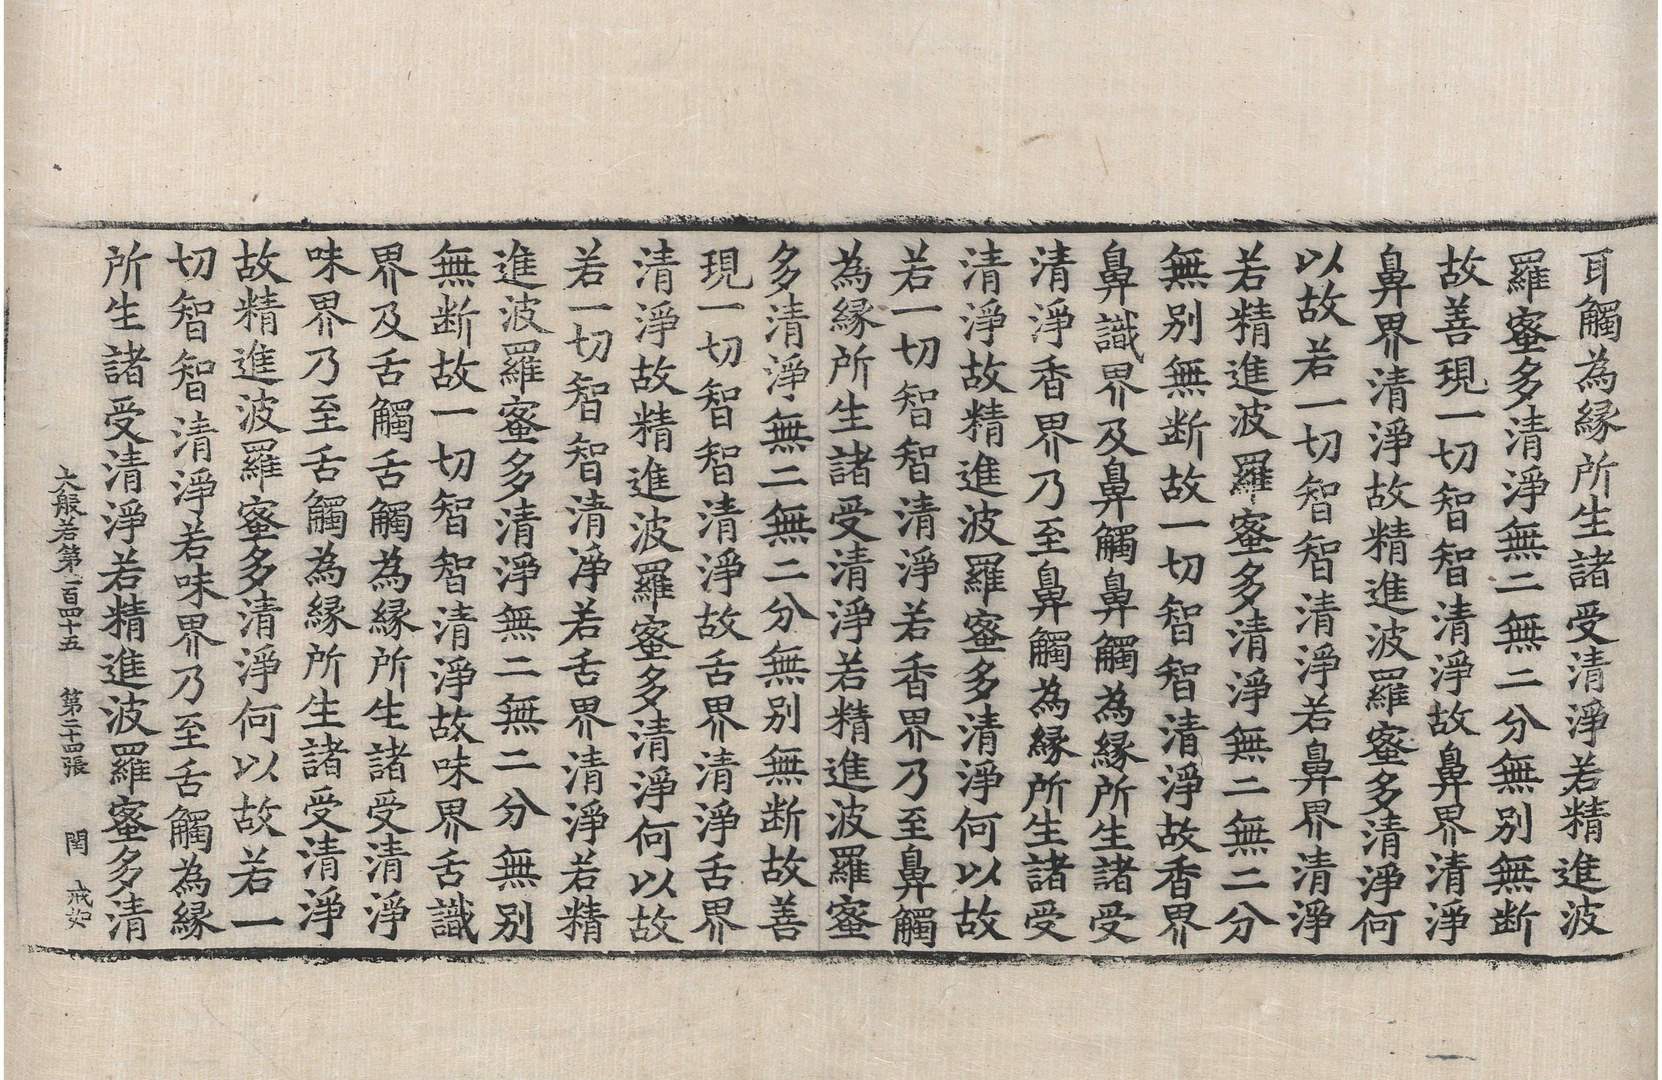 耳觸為緣所生諸受清淨若精進波
羅蜜多清淨無二無二分無別無斷
故善現一切智智清淨故鼻界清淨
鼻界清淨故精進波羅蜜多清淨何
以故若一切智智清淨若鼻界清淨
若精進波羅蜜多清淨無二無二分
無別無断故一切智智清淨故香界
鼻識界及鼻觸鼻觸為緣所生諸受
清淨香界乃至鼻觸為緣所生諸受
清淨故精進波羅蜜多清淨何以故
若一切智智清淨若香界乃至鼻觸
為緣所生諸受清淨若精進波羅蜜
多清淨無二無二分無別無断故善
現一切智智清淨故舌界清淨舌界
清淨故精進波羅蜜多清淨何以故
若一切智智清淨若舌界清淨若精
進波羅蜜多清淨無二無二分無別
無断故一切智智清淨故味界舌識
界及舌觸舌觸為緣所生諸受清淨
味界乃至舌觸為緣所生諸受清淨
故精進波羅蜜多清淨何以故若一
切智智清淨若味界乃至舌觸為緣
所生諸受清淨若精進波羅蜜多清
大般若第二百四十五 第二十四張 閏 戒如